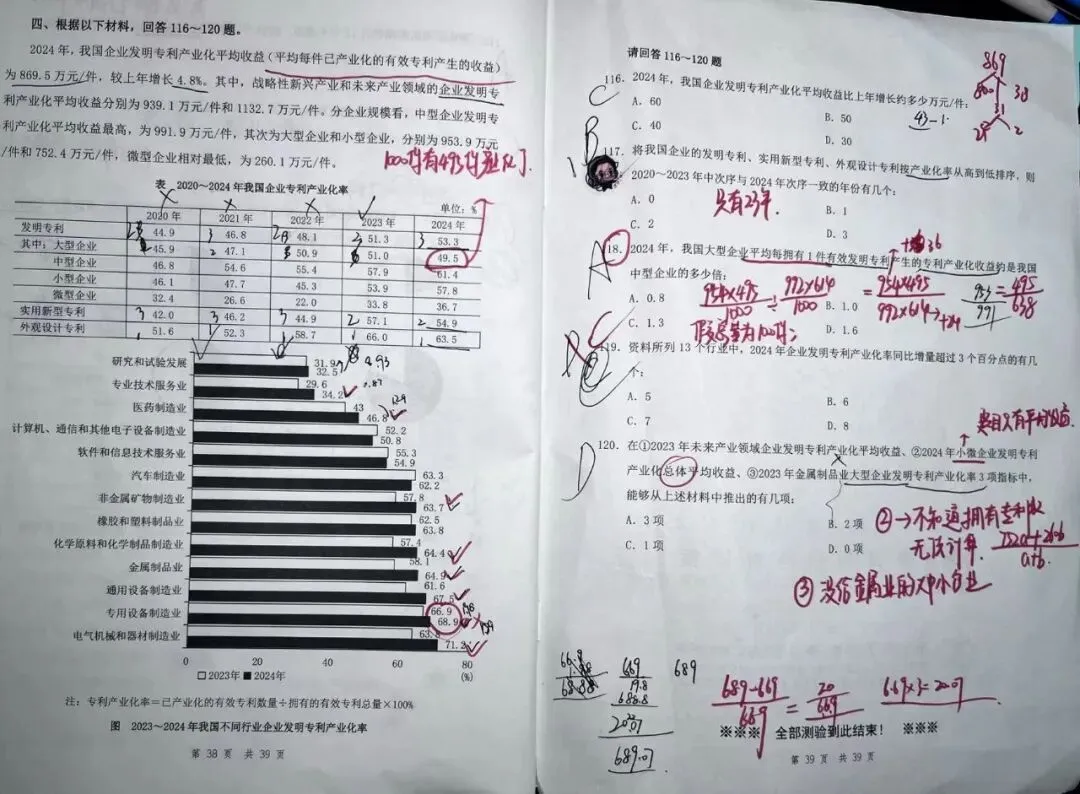 四、根据以下材料，回答116～120题。
2024年，我国企业发明专利产业化平均收益（平均每件已产业化的有效专利产生的收益）
为869.5万元/件，较上年增长4.8%。其中，战略性新兴产业和未来产业领域的企业发明专
利产业化平均收益分别为939.1万元/件和1132.7万元/件。分企业规模看，中型企业发明专
利产业化平均收益最高，为991.9万元/件，其次为大型企业和小型企业，分别为953.9万元
/件和752.4万元/件，微型企业相对最低，为260.1万元/件。
100件有495件产业化了.
表 2020～2024年我国企业专利产业化率
单位：%
2020年 2021年 2022年 2023年 2024年
发明专利 44.9 46.8 48.1 51.3 53.3
其中：大型企业 45.9 47.1 50.9 51.0 49.5
中型企业 46.8 54.6 55.4 57.9 61.4
小型企业 46.1 47.7 45.3 53.9 57.8
微型企业 32.4 26.6 22.0 33.8 36.7
实用新型专利 42.0 46.2 44.9 57.1 54.9
外观设计专利 51.6 52.3 58.7 66.0 63.5
研究和试验发展 31.9 32.5
专业技术服务业 29.6 34.2
医药制造业 43 46.8
计算机、通信和其他电子设备制造业 52.2 50.8
软件和信息技术服务业 55.3 54.9
汽车制造业 63.3 62.2
非金属矿物制造业 57.8 63.7
橡胶和塑料制品业 62.5 63.8
化学原料和化学制品制造业 57.4 64.4
金属制品业 58.1 64.9
通用设备制造业 61.6 67.5
专用设备制造业 66.9 68.9
电气机械和器材制造业 71.2
0 20 40 60 80
(%)
□2023年 ■2024年
注：专利产业化率=已产业化的有效专利数量÷拥有的有效专利总量×100%
图 2023～2024年我国不同行业企业发明专利产业化率
第 38 页 共 39 页
请回答116～120题
116. 2024年，我国企业发明专利产业化平均收益比上年增长约多少万元/件：
A. 60
B. 50
C. 40
D. 30
C
869
117. 将我国企业的发明专利、实用新型专利、外观设计专利按产业化率从高到低排序，则
2020～2023年中次序与2024年次序一致的年份有几个：
A. 0
B. 1
C. 2
D. 3
B
只有23年.
118. 2024年，我国大型企业平均每拥有1件有效发明专利产生的专利产业化收益约是我国
中型企业的多少倍：
A. 0.8
B. 1.0
C. 1.3
D. 1.6
A
954×495/100 ÷ 992×614/100 = 954×495/992×614
119. 资料所列13个行业中，2024年企业发明专利产业化率同比增量超过3个百分点的有几
个：
A. 5
B. 6
C. 7
D. 8
120. 在①2023年未来产业领域企业发明专利产业化平均收益、②2024年小微企业发明专利
产业化总体平均收益、③2023年金属制品业大型企业发明专利产业化率3项指标中，
能够从上述材料中推出的有几项：
A. 3项
B. 2项
C. 1项
D. 0项
D
②→不知道拥有专利数
无法计算.
689
689-669/669 = 20/669
6.69×3=20.07
689.07
※※※ 全部测验到此结束！ ※※※
第 39 页 共 39 页